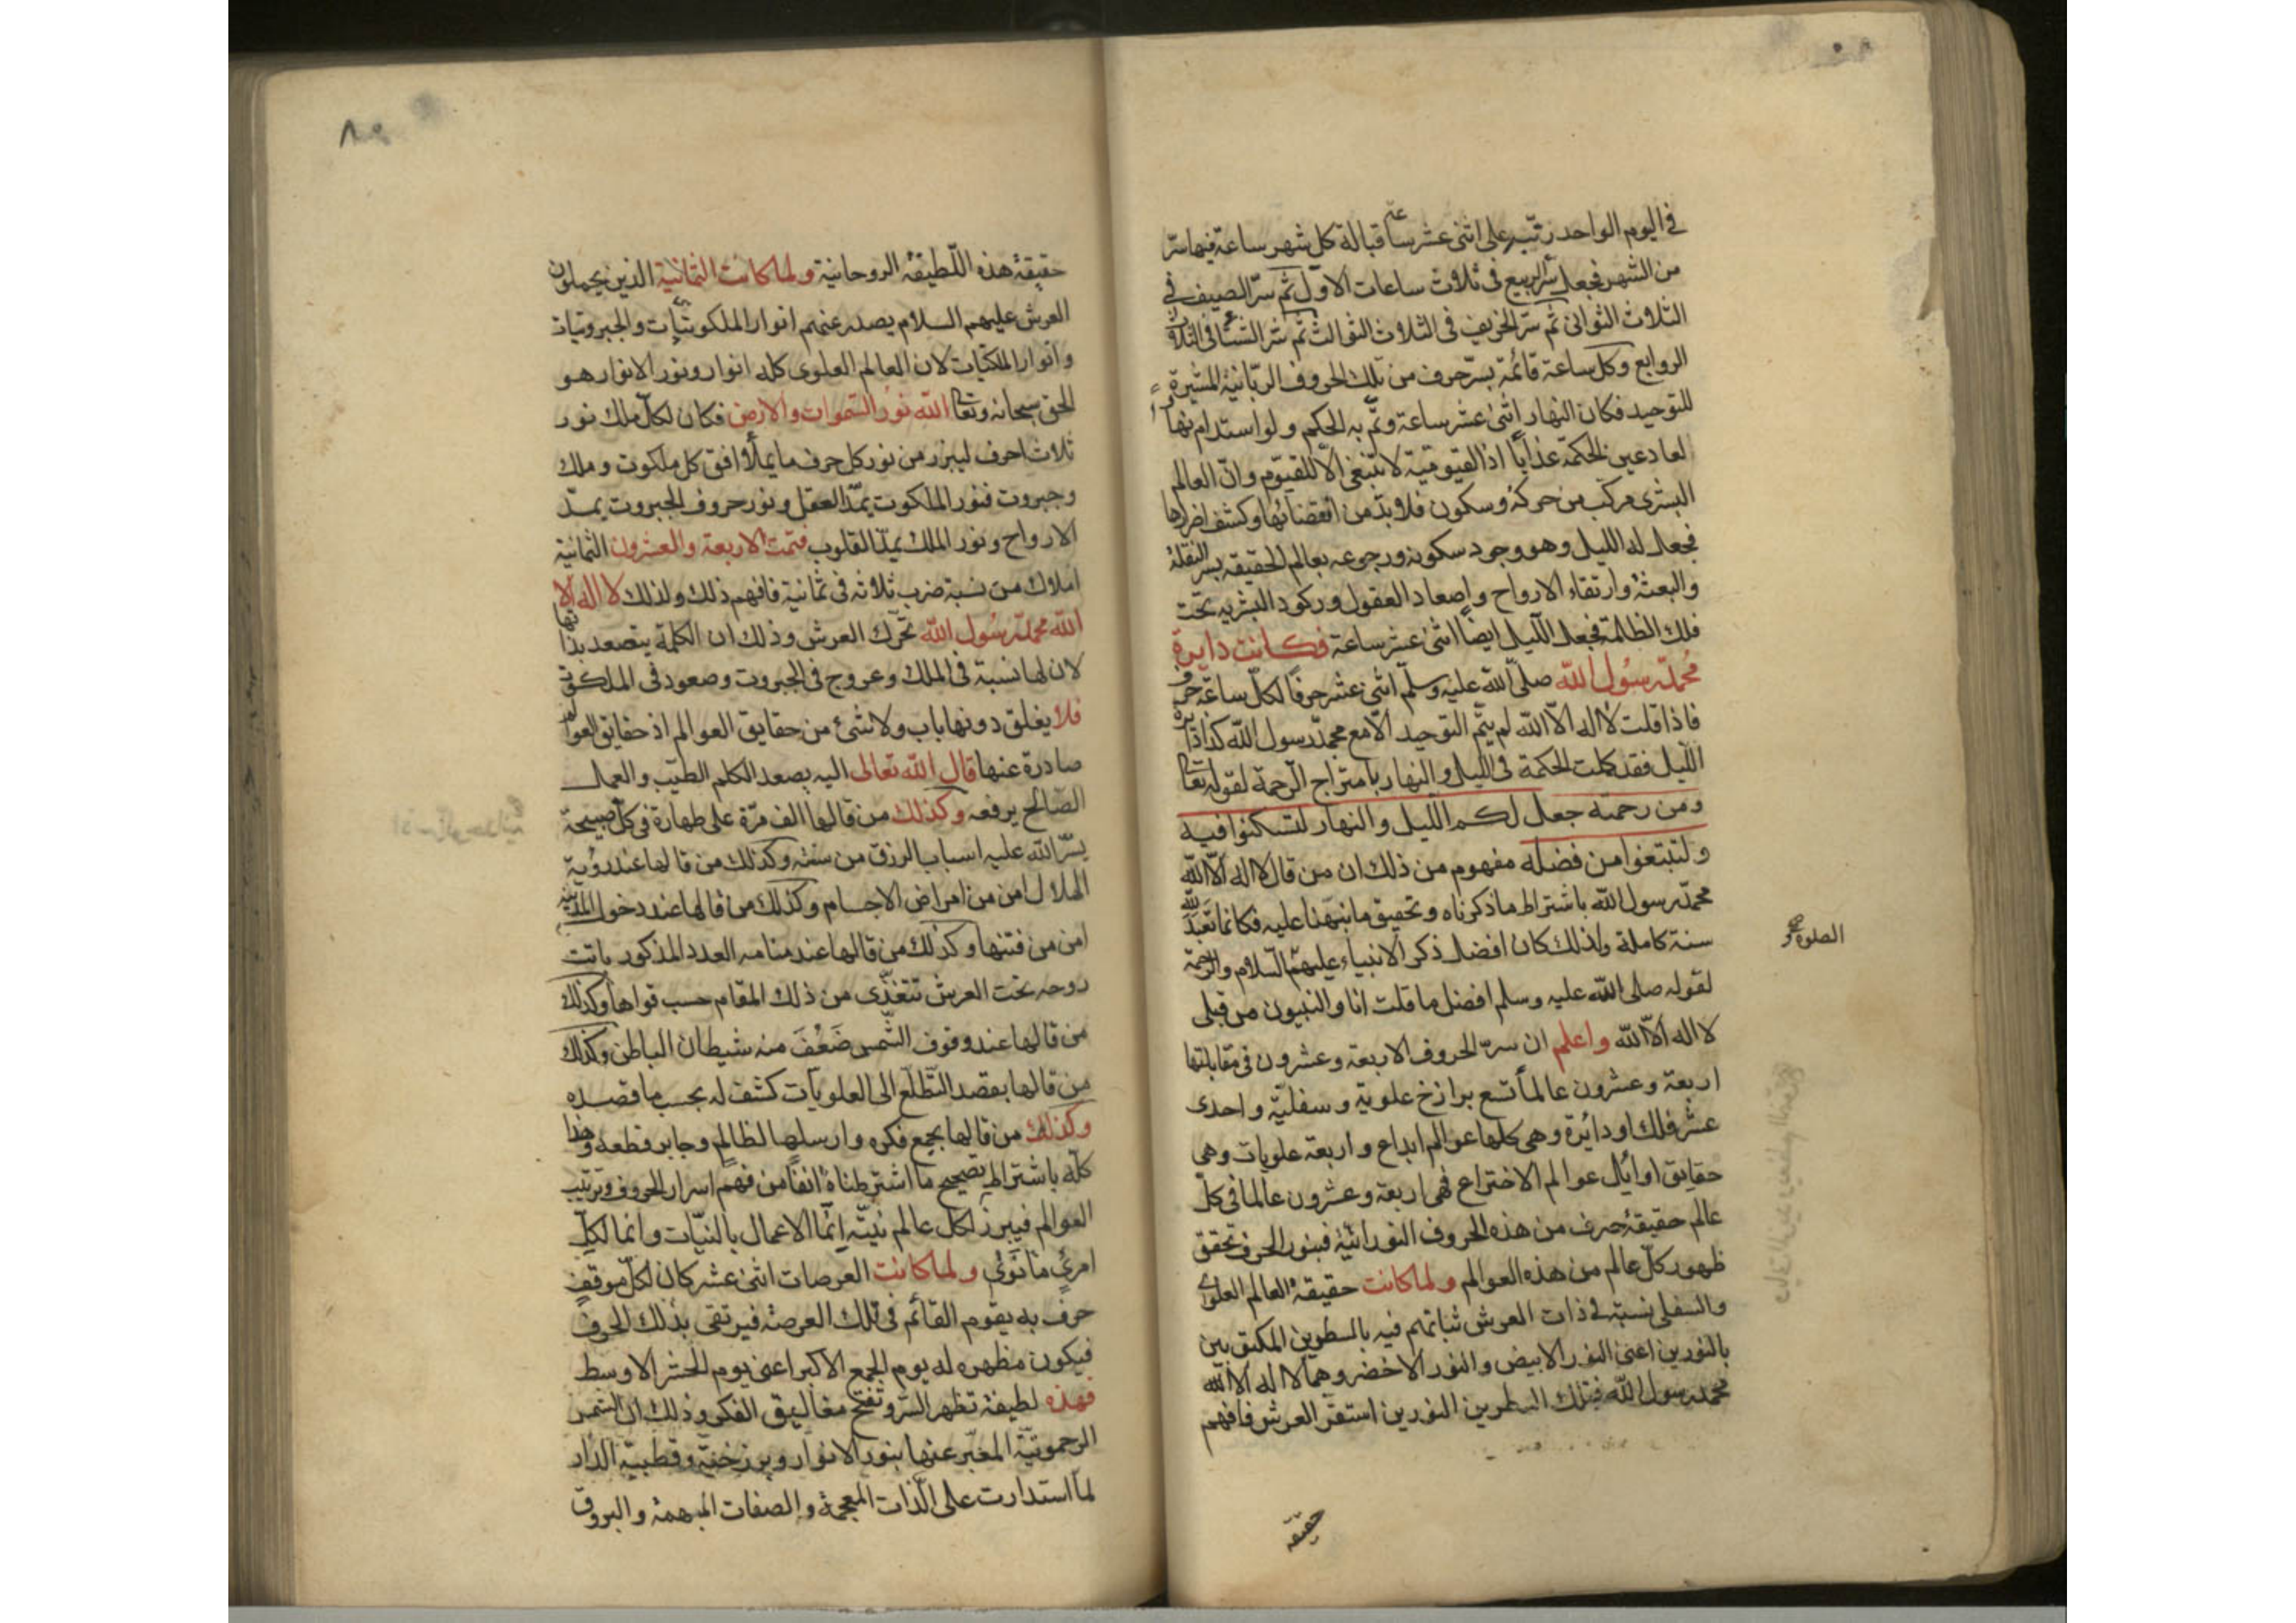 في اليوم الواحد رتبه على اثنى عشر ساعة قبالة كل شهر ساعة فيها سرّ
من الشهر فجعل سرّ الربيع فى ثلاث ساعات الاول ثم سرّ الصيف فى
الثلاث الثوانى ثم سرّ الخريف فى الثلاث الثوالث ثم سرّ الشتا فى الثلاث
الروابع وكل ساعة قائمة بسرّ حرف من تلك الحروف الربّانية المشيرة
للتوحيد فكان النهار اثنى عشر ساعة وتمّ به الحكم ولو استدام نهارا
لعاد عين الحكمة عذاباً اذ القيوميّة لا تنبغى الّا للقيّوم وانّ العالم
البشرى مركب من حركة وسكون فلا بدّ من انقضائها وكشف اضرارها
فجعل له الليل وهو وجود سكونه ورجوعه بعالم الحقيقة بسر النقلة
والبعثة وارتقاء الارواح واصعاد العقول وركود البشريه تحت
فلك الظلمة فجعل الليل ايضاً اثنى عشر ساعة فكانت دايرة
محمّد رسُول الله صلّى الله عليه وسلّم اثنى عشر حرفًا لكلّ ساعة حرف
فاذا قلت لا اله الّا الله لم يتمّ التوحيد الّا مع محمّد رسول الله كذا دايرة
الليل فقد كملت الحكمة فى الليل والنهار بامتزاج الرّحمة لقوله تعا
ومن رحمته جعل لكم الليل والنهار لتسكنوا فيه
ولتبتغوا من فضله مفهوم من ذلك ان من قال لا اله الّا الله
محمّد رسول الله باشتراط ما ذكرناه وتحقيق ما نبهنا عليه فكانما تعبّد لله
سنة كاملة ولذلك كان افضل ذكر الانبياء عليهم السلام والرحمة
الصلوة و صح
لقوله صلى الله عليه وسلم افضل ما قلت انا والنبيون من قبلى
لا اله الّا الله واعلم ان سرّ الحروف الاربعة وعشرون فى مقابلتها
اربعة وعشرون عالماً تسع برازخ علوية وسفليّة واحدى
عشر فلك او دائرة وهى كلها عوالم ابداع واربعة علويات وهى
حقايق اوائل عوالم الاختراع فهى اربعة وعشرون عالما فى كلّ
عالم حقيقة حرف من هذه الحروف النورانيّة فبنور الحرف تحقق
ظهور كلّ عالم من هذه العوالم ولما كانت حقيقة العالم العلوى
والسفلى نسبة فى ذات العرش ثباتهم فيه بالسطرين المكتوبين
بالنورين اعنى النور الابيض والنور الاخضر وهما لا اله الا الله
محمد رسول الله فبتلك السطرين النورين استقرّ العرش فافهم
حقيقة
حقيقة هذه اللطيفة الروحانية ولما كانت الثمانية الذين يحملون
العرش عليهم السلام يصدر عنهم انوار الملكوتيات والجبروتيات
وانوار الملكيات لان العالم العلوى كله انوار ونور الانوار هو
الحق سبحانه وتعا الله نور السموات والارض فكان لكلّ ملك نور
ثلاث احرف ليبرز من نور كل حرف ما يملأ افق كل ملكوت وملك
وجبروت فنور الملكوت يمدّ العقل ونور حروف الجبروت يمدّ
الارواح ونور الملك يمدّ القلوب فتمت الاربعة والعشرون الثمانية
املاك من نسبة ضرب ثلاثه فى ثمانية فافهم ذلك ولذلك لا اله الا
الله محمّد رسُول الله تحرّك العرش وذلك ان الكلمة يتصعد بذاتها
لان لها نسبة فى الملك وعروج فى الجبروت وصعود فى الملكوت
فلا يغلق دونها باب ولا شئ من حقايق العوالم اذ حقايق العوالم
صادرة عنها قال الله تعالى اليه يصعد الكلم الطيّب والعمل
الصّالح يرفعه وكذلك من قالها الف مرّة على طهارة فى كلّ صبيحة
يسّر الله عليه اسباب الرزق من سنته وكذلك من قالها عند رؤية
الهلال امن من امراض الاجسام وكذلك من قالها عند دخول المدينة
امن من فتنها وكذلك من قالها عند منامه العدد المذكور باتت
روحه تحت العرش تتغذّى من ذلك المقام حسب قواها وكذلك
من قالها عند وقوف الشّمس ضَعُفَ منه شيطان الباطن وكذلك
من قالها بقصد التطلّع الى العلويات كشف له بحسب ما قصده
وكذلك من قالها بجمع فكره وارسلها لظالم وجابر قطعه وهذا
كلّه باشتراط تصحيح ما اشترطناه انفاً من فهم اسرار الحروف وترتيب
العوالم فيبرز لكل عالم نيّته انّما الاعمال بالنيّات وانما لكلّ
امرئ ما نوى ولما كانت العرصات اثنى عشر كان لكلّ موقف
حرف به يقوم القائم فى تلك العرصة فيرتقى بذلك الحرف
فيكون مظهره له يوم الجمع الاكبر اعنى يوم الحشر الاوسط
فهذه لطيفة تظهر السّر وتفتح مغاليق الفكر وذلك ان الشمس
الرحموتيّة المعبّر عنها بنور الانوار وبرزخيّة وقطبيّة الدّار
لما استدارت على الذات المعجمة والصفات المبهمة والبروق